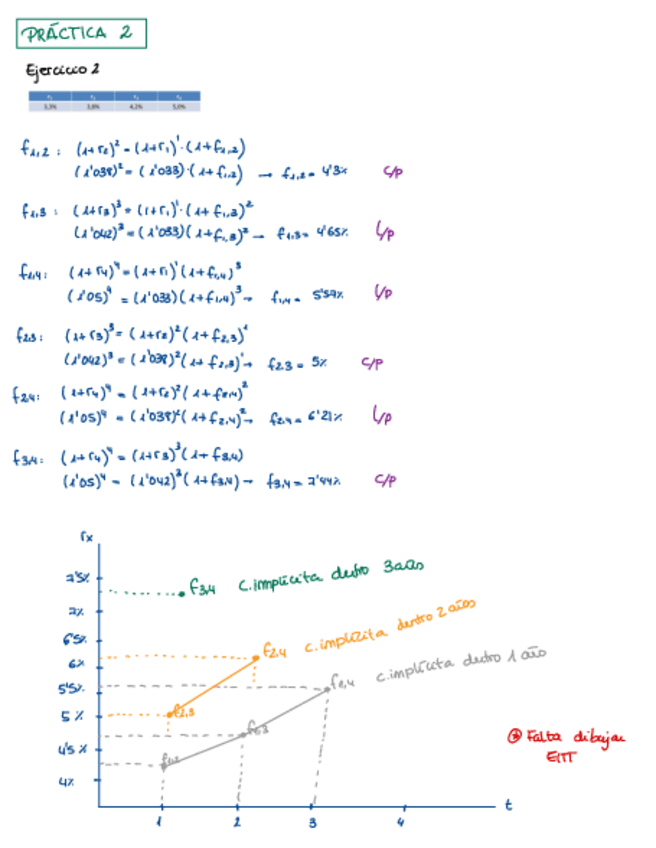 PRÁCTICA 2
Ejercicio 2
r₁ r₂ r₃ r₄
3,3% 3,8% 4,2% 5,0%
f1,2 : (1+r2)² = (1+r1)¹·(1+f1,2)
(1'038)² = (1'033)·(1+f1,2) → f1,2 = 4'3% C/P
f1,3 : (1+r3)³ = (1+r1)¹·(1+f1,3)²
(1'042)³ = (1'033)(1+f1,3)² → f1,3 = 4'65% L/P
f1,4 : (1+r4)⁴ = (1+r1)¹(1+f1,4)³
(1'05)⁴ = (1'033)(1+f1,4)³ → f1,4 = 5'57% L/P
f2,3 : (1+r3)³ = (1+r2)²(1+f2,3)¹
(1'042)³ = (1'038)²(1+f2,3)¹ → f2,3 = 5% C/P
f2,4 : (1+r4)⁴ = (1+r2)²(1+f2,4)²
(1'05)⁴ = (1'038)²(1+f2,4)² → f2,4 = 6'21% L/P
f3,4 : (1+r4)⁴ = (1+r3)³(1+f3,4)
(1'05)⁴ = (1'042)³(1+f3,4) → f3,4 = 7'44% C/P
rx
7'5%
f3,4 c.implícita dentro 3 años
7%
6'5%
f2,4 c.implícita dentro 2 años
6%
5'5%
f1,4 c.implícita dentro 1 año
5%
f2,3
4'5%
f1,3
f1,2
4%
* Falta dibujar
EITT
t
1 2 3 4